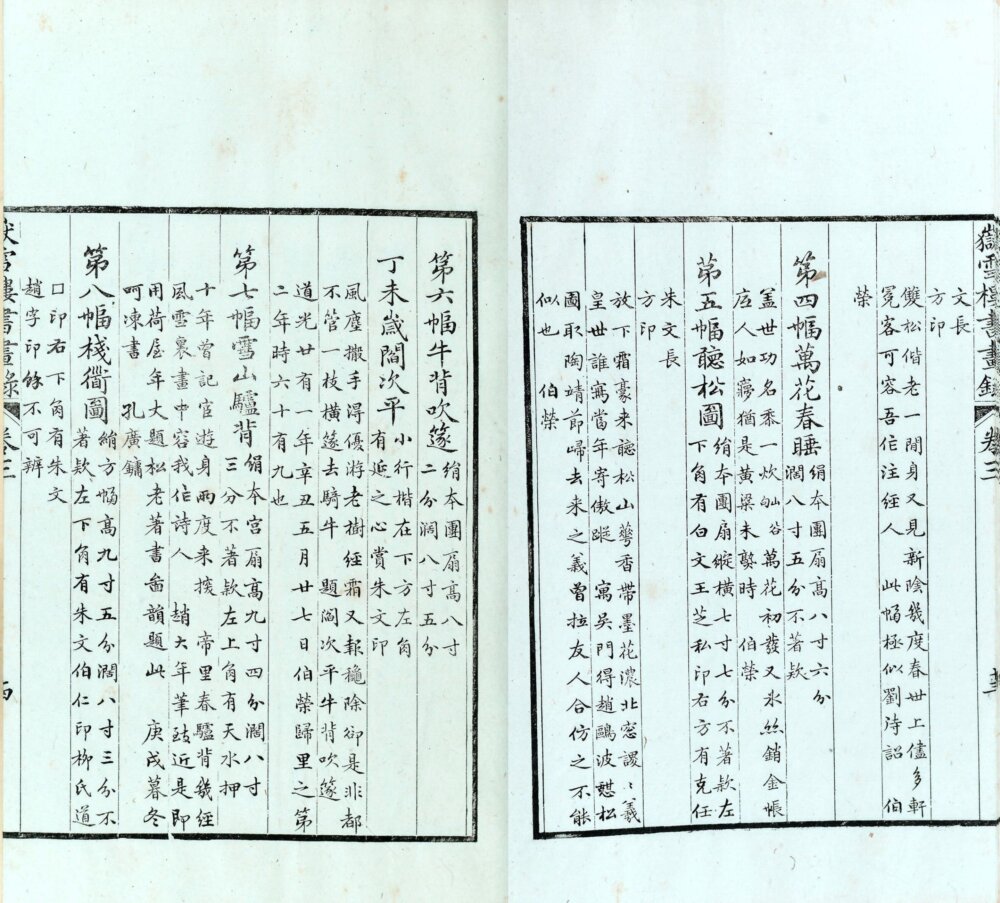 嶽雪樓書畫錄 卷三
文長
方印
雙松偕老一閒身又見新陰幾度春世上儘多軒
冕客可容吾作注經人 此幅極似劉待詔 伯
榮
第四幅萬花春睡 絹本團扇高八寸六分
濶八寸五分不著欵
蓋世功名黍一炊 谷萬花初發又氷絲銷金帳
底人如夢猶是黃粱未熟時 伯榮
第五幅聽松圖 絹本團扇縱橫七寸七分不著欵左
下角有白文王芝私印右方有克任
朱文長
方印
放下霜豪来聽松山蕚香帶墨花濃北窓謖〻義
皇世誰寫當年寄傲蹤 寓吳門得趙鷗波憇松
圖取陶靖節歸去来之義曾拉友人合仿之不能
似也 伯榮
第六幅牛背吹篴 絹本團扇高八寸
二分濶八寸五分
丁未歲閻次平 小行楷在下方左角
有延之心賞朱文印
風塵撒手得優游老樹經霜又報穐除卻是非都
不管一枝橫篴去騎牛 題閻次平牛背吹篴
道光廿有一年辛丑五月廿七日伯榮歸里之第
二年時六十有九也
第七幅雪山驢背 絹本宮扇高九寸四分濶八寸
三分不著欵左上角有天水押
十年曾記宦游身兩度来 帝里春驢背幾經
風雪裏畫中容我作詩人 趙大年筆 近是即
用荷屋年大題松老著書畵韻題此 庚戌暮冬
呵凍書 孔廣鏞
第八幅棧衟圖 絹方幅高九寸五分濶八寸三分不
著欵左下角有朱文伯仁印柳氏道
口印右下角有朱文
趙字印餘不可辨